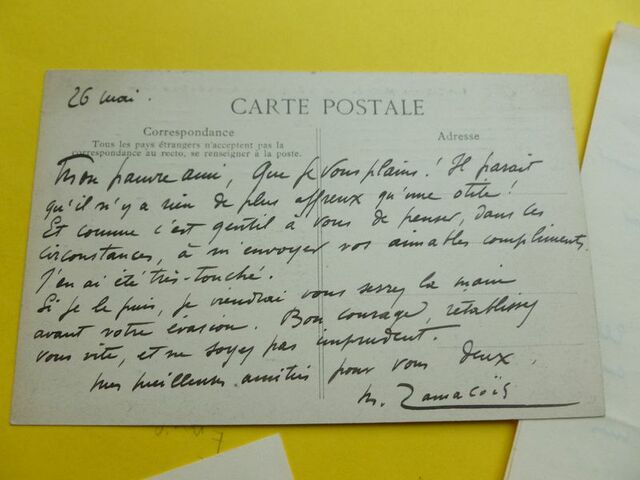 26 mai.
CARTE POSTALE
Correspondance
Tous les pays étrangers n'acceptent pas la
correspondance au recto, se renseigner à la poste.
Adresse
Mon pauvre ami, Que je vous plains! Il parait
qu'il n'y a rien de plus affreux qu'une otite!
Et comme c'est gentil à vous de penser, dans ces
circonstances, à m'envoyer vos aimables compliments.
J'en ai été très-touché.
Si je le puis, je viendrai vous serrer la main
avant votre évasion. Bon courage, rétablissez
vous vite, et ne soyez pas imprudent.
Mes meilleures amitiés pour vous deux.
M. Zamacoïs